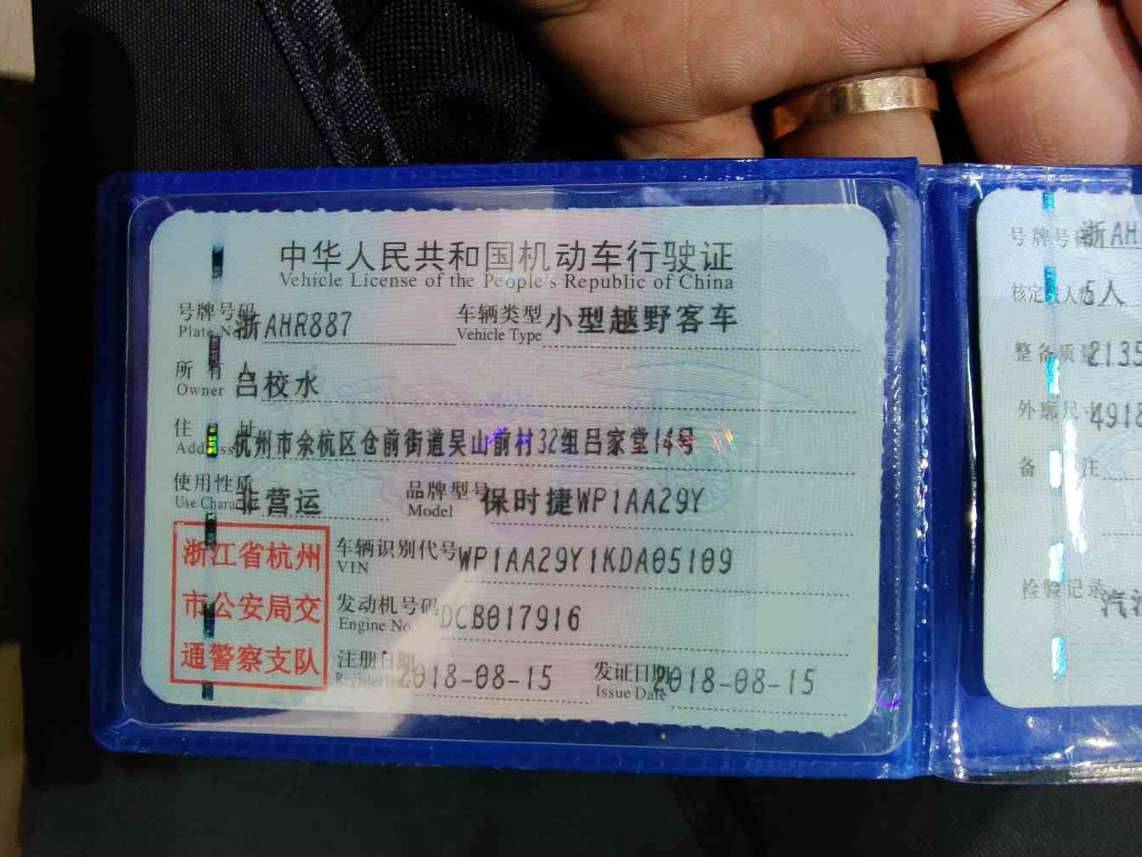 中华人民共和国机动车行驶证
Vehicle License of the People's Republic of China
号牌号码 浙AHR887 车辆类型 小型越野客车
Plate No. Vehicle Type
所有人 吕校水
Owner
住址 杭州市余杭区仓前街道吴山前村32组吕家堂14号
Address
使用性质 非营运 品牌型号 保时捷WP1AA29Y
Use Charac Model
浙江省杭州
市公安局交
通警察支队
车辆识别代号 WP1AA29Y1KDA05109
VIN
发动机号码 DCB017916
Engine No.
注册日期 2018-08-15 发证日期 2018-08-15
Register Date Issue Date
号牌号码 浙AH
核定载人数 5人
整备质量 2135
外廓尺寸 491
备注
检验记录 汽